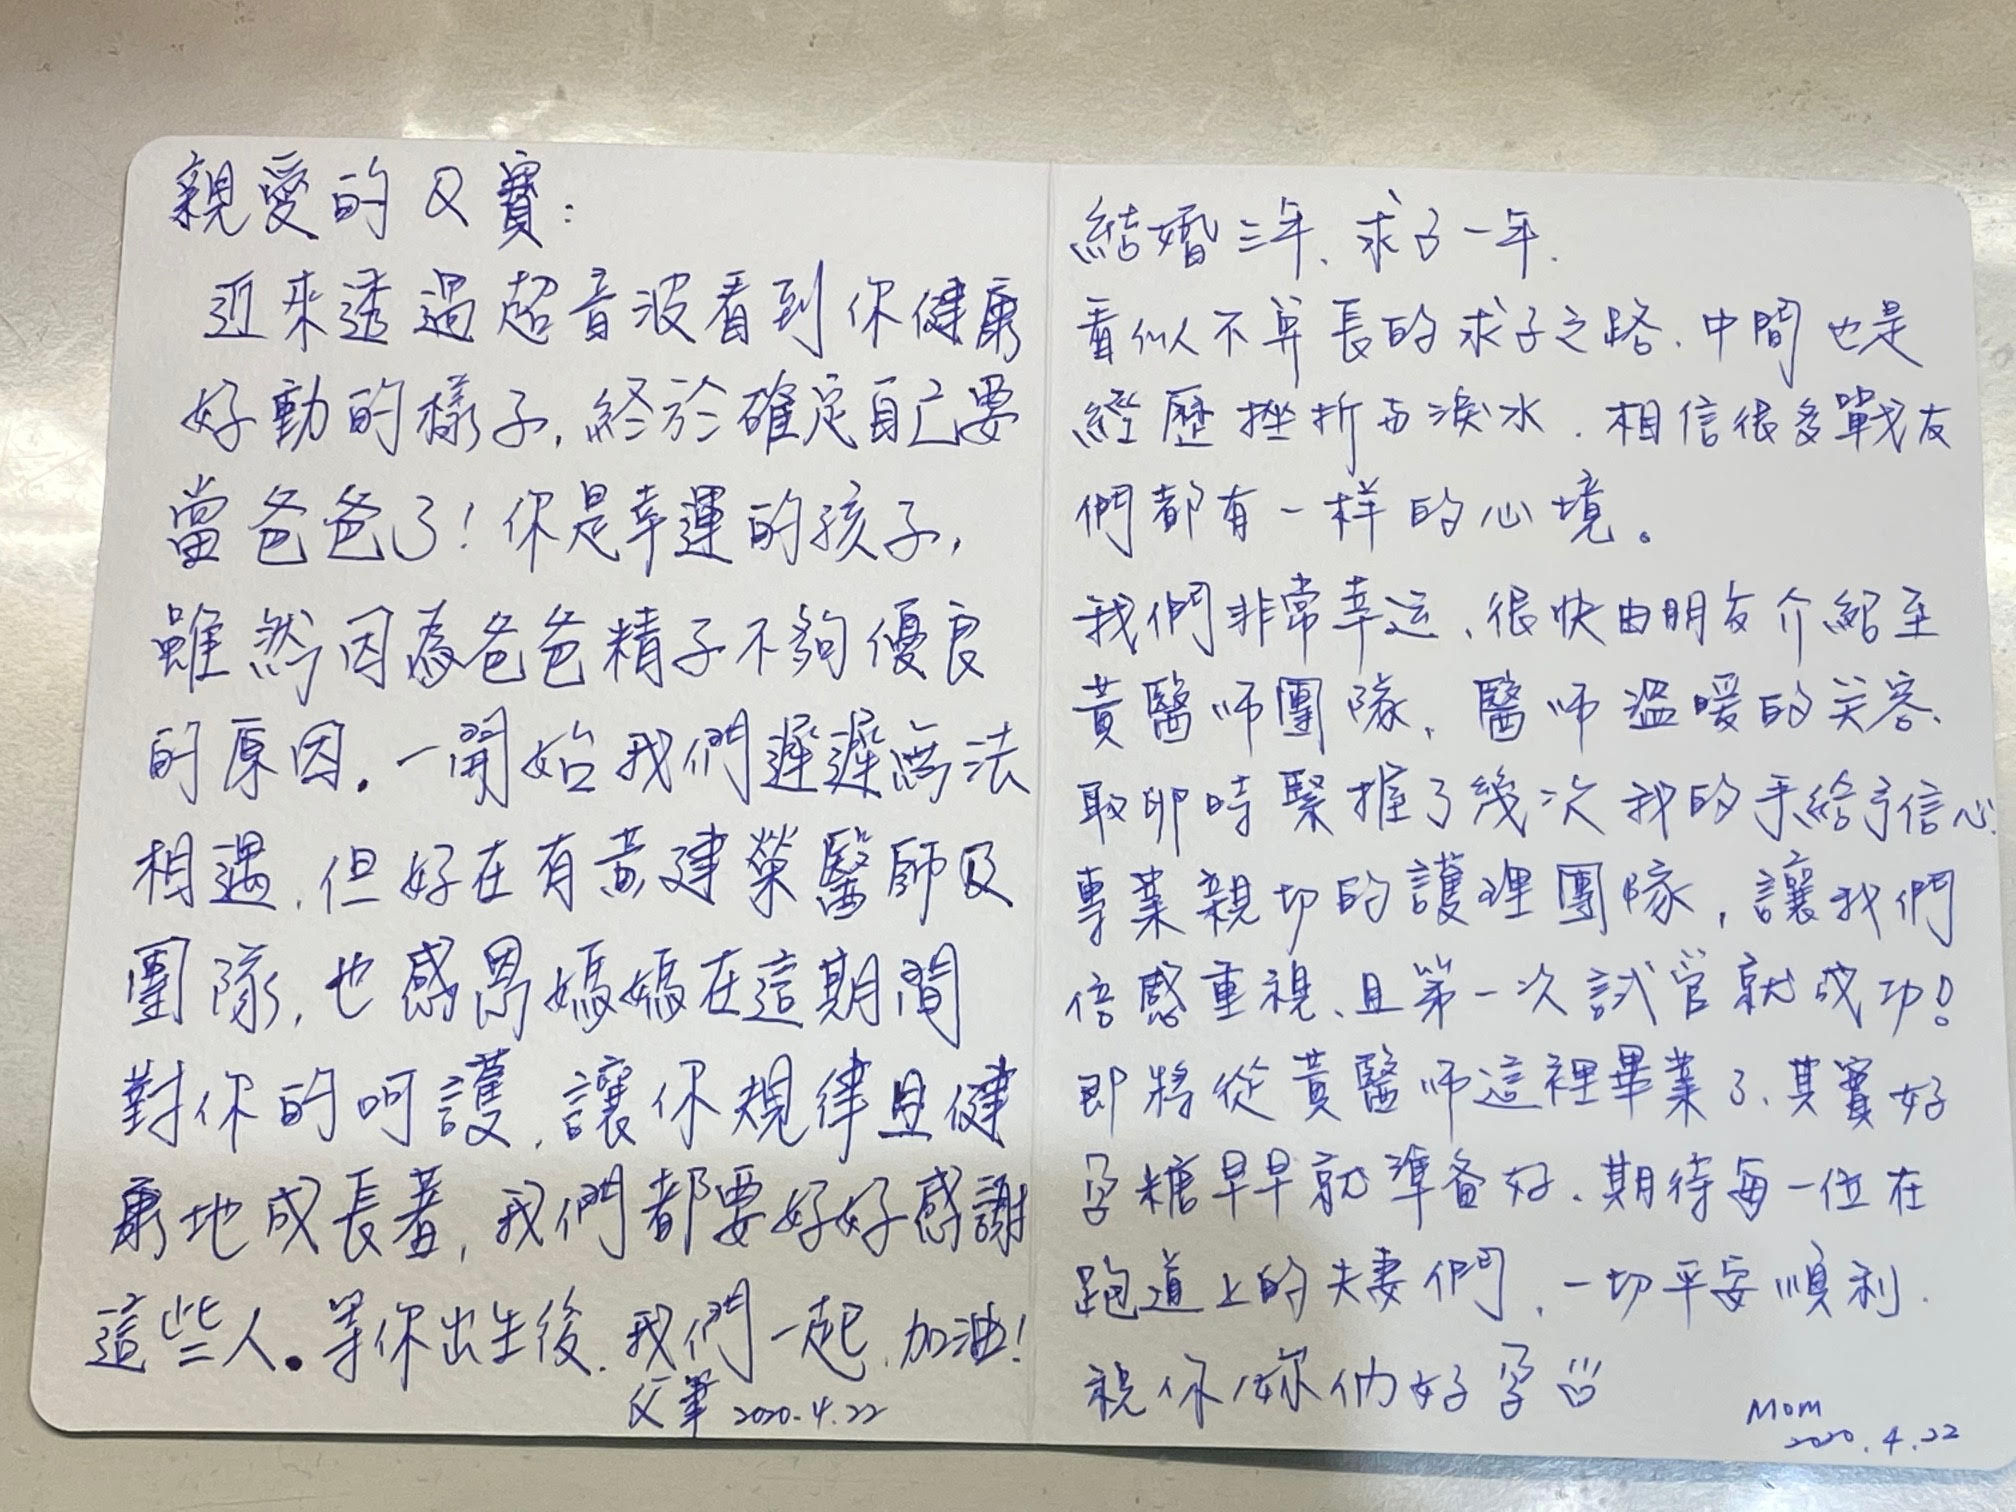 親愛的Q寶:
近來透過超音波看到你健康
好動的樣子,終於確定自己要
當爸爸了!你是幸運的孩子,
雖然因為爸爸精子不夠優良
的原因。一開始我們遲遲無法
相遇,但好在有黃建榮醫師及
團隊,也感恩媽媽在這期間
對你的呵護,讓你規律且健
康地成長著,我們都要好好感謝
這些人。等你出生後,我們一起,加油!
父筆 2020.4.22
結婚三年、求子一年.
看似不算長的求子之路、中間也是
經歷挫折与淚水.相信很多戰友
們都有一样的心境。
我們非常幸运、很快由朋友介紹至
黃醫师團隊,醫师溫暖的笑容、
取卵時緊握了幾次我的手給予信心.
專業親切的護理團隊,讓我們
倍感重視、且第一次試管就成功!
即將從黃醫师這裡畢業了、其實好
孕糖早早就準备好、期待每一位在
跑道上的夫妻們,一切平安順利.
祝你/妳们好孕
Mom
2020.4.22